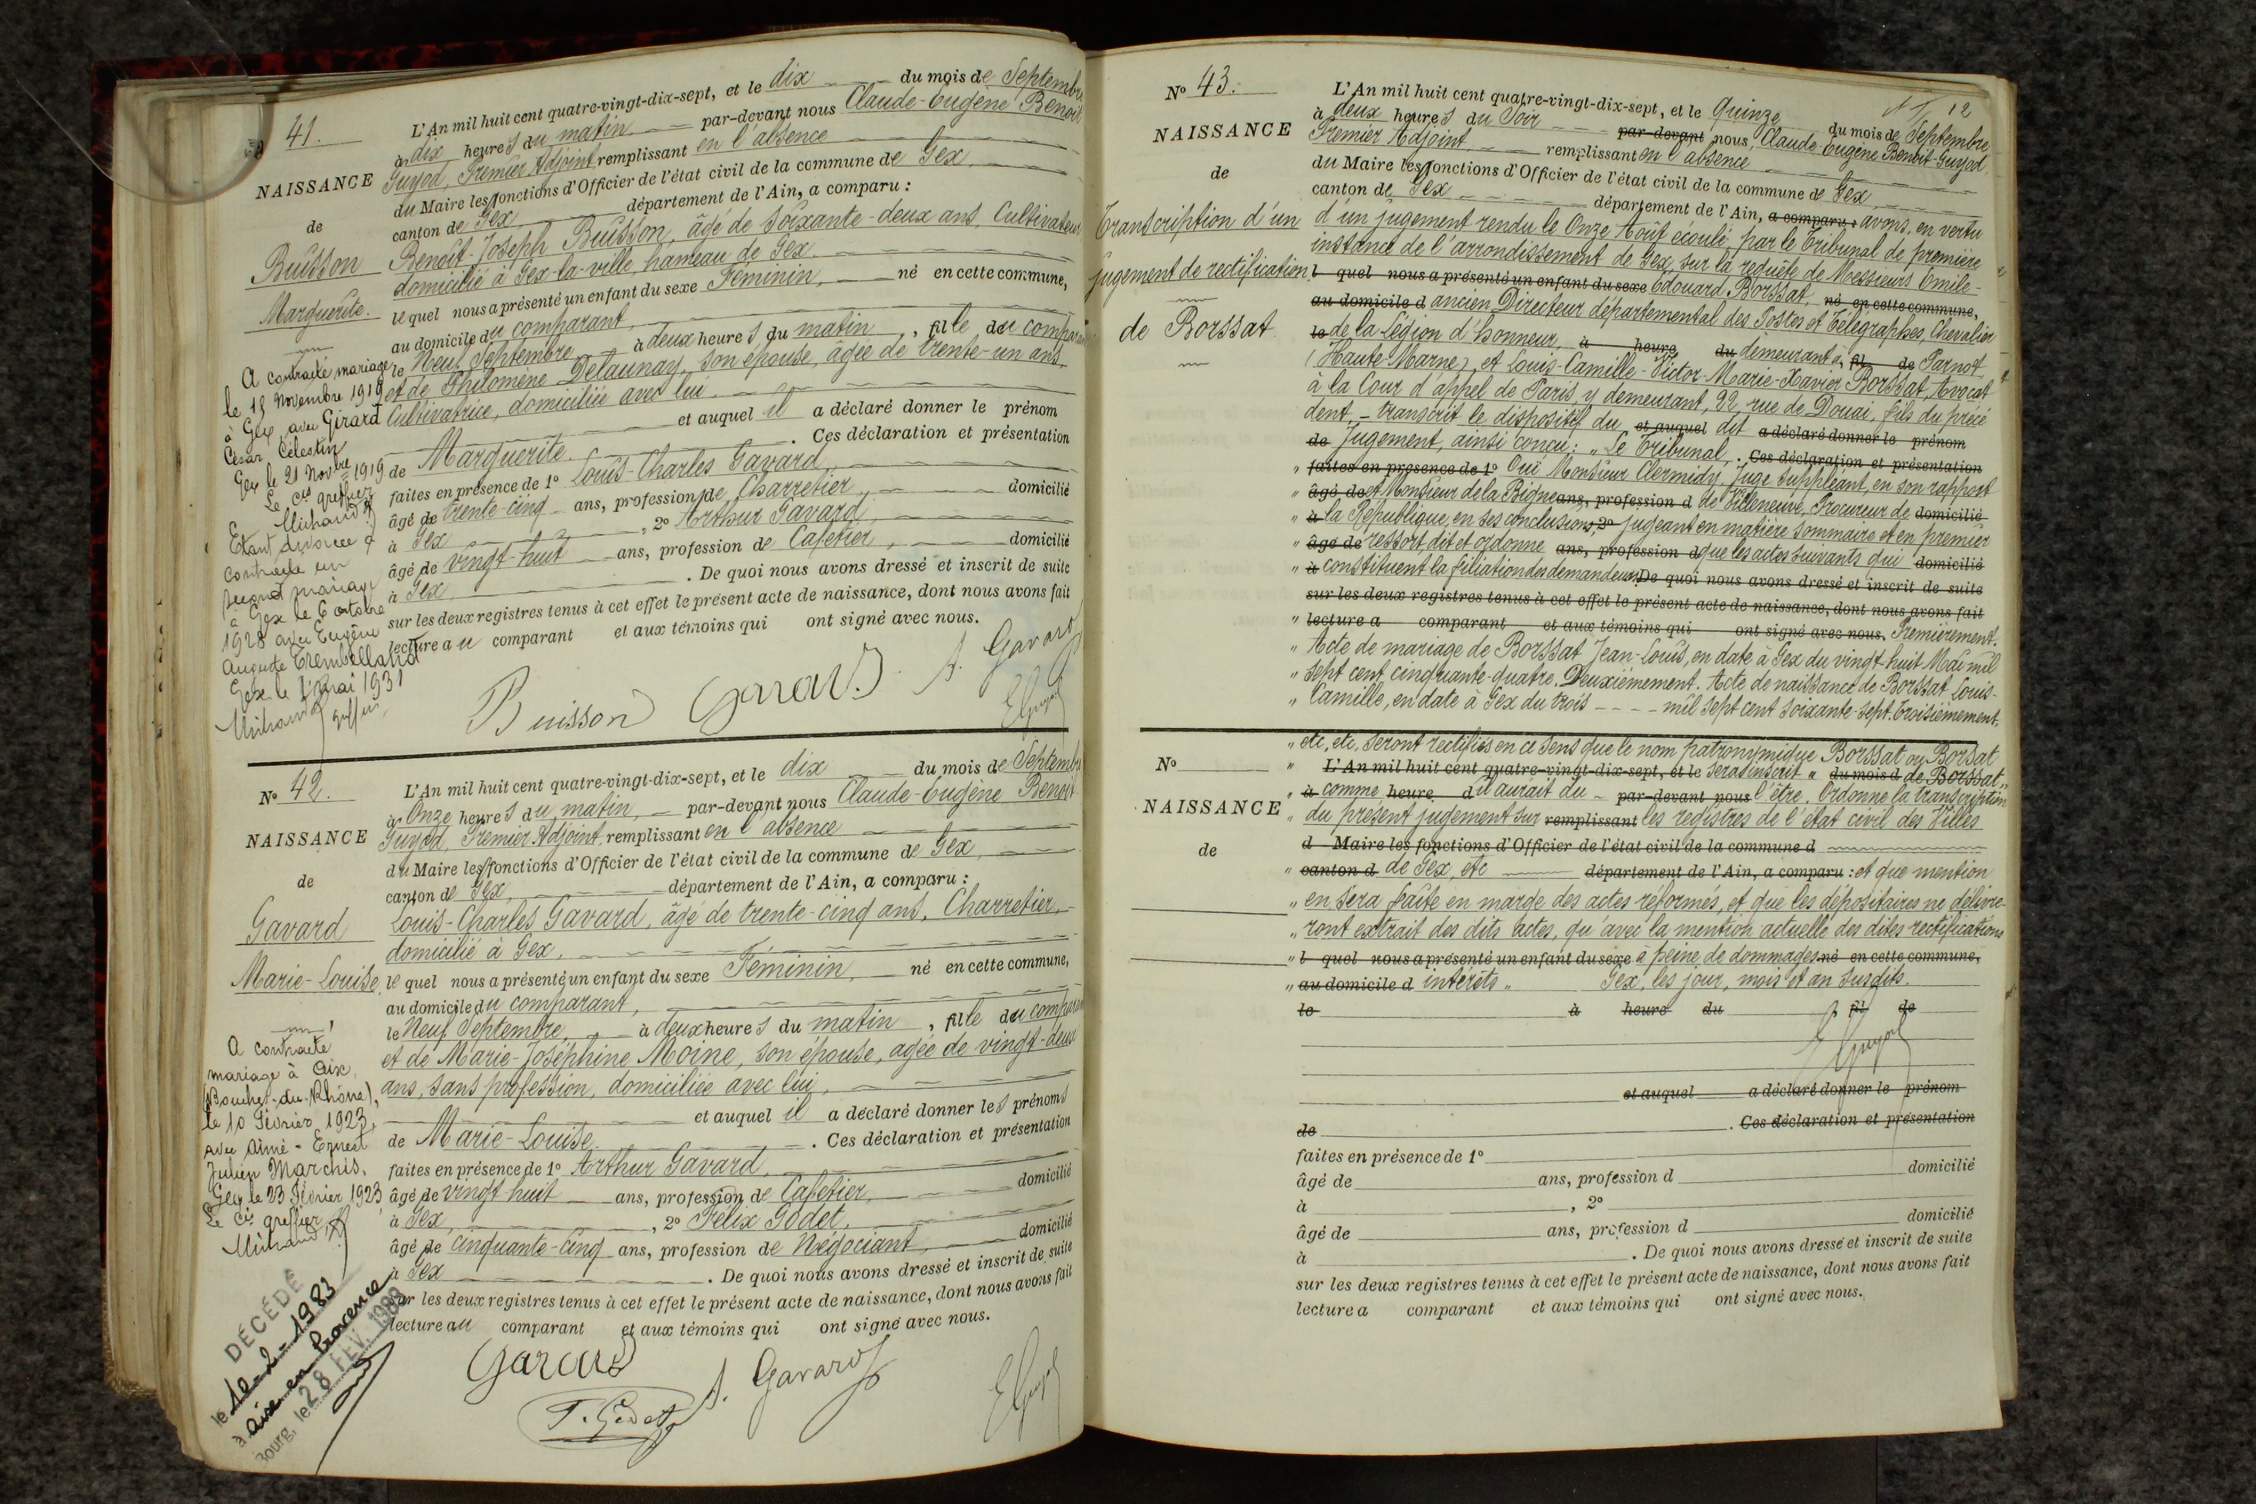 N° 41.
NAISSANCE
de
Buisson
Marguerite.
A contracté mariage
le 15 Novembre 1919
à Gex avec Girard
César Célestin
Gex le 21 Novbre 1919
Le cis greffier
Michaud
Etant divorcée a
contracté un
second mariage
à Gex le 6 octobre
1928 avec Eugène
Auguste Trembelland
Gex le 1er mai 1931
Michaud
greffier
L'An mil huit cent quatre-vingt-dix-sept, et le dix du mois de Septembre
à dix heures du matin par-devant nous Claude-Eugène Benoit
Guyod, Premier Adjoint, remplissant en l'absence
du Maire les fonctions d'Officier de l'état civil de la commune de Gex,
canton de Gex département de l'Ain, a comparu :
Benoît-Joseph Buisson, âgé de soixante-deux ans, Cultivateur
domicilié à Gex-la-ville, hameau de Gex.
lequel nous a présenté un enfant du sexe Féminin, né en cette commune,
au domicile du comparant,
le Neuf Septembre à deux heures du matin, fille du comparant
et de Philomène Delaunay, son épouse, âgée de trente-un ans,
Cultivatrice, domiciliée avec lui.
et auquel il a déclaré donner le prénom
de Marguerite. Ces déclaration et présentation
faites en présence de 1° Louis-Charles Gavard,
âgé de trente-cinq ans, profession de Charretier, domicilié
à Gex, 2° Arthur Gavard,
âgé de vingt-huit ans, profession de Cafetier, domicilié
à Gex. De quoi nous avons dressé et inscrit de suite
sur les deux registres tenus à cet effet le présent acte de naissance, dont nous avons fait
lecture au comparant et aux témoins qui ont signé avec nous.
Buisson Gavard A. Gavard
EGuyod
N° 42.
NAISSANCE
de
Gavard
Marie-Louise
A contracté
mariage à Aix
(Bouches-du-Rhône),
le 10 Février 1923,
avec Aimé-Ernest
Julien Marchis.
Gex le 23 Février 1923
Le cis greffier,
Michaud
DÉCÉDÉ
le 10-2-1983
à Aix en Provence
Bourg, le 28 FEV. 1983
L'An mil huit cent quatre-vingt-dix-sept, et le dix du mois de Septembre
à Onze heures du matin, par-devant nous Claude-Eugène Benoit
Guyod, Premier Adjoint, remplissant en l'absence
du Maire les fonctions d'Officier de l'état civil de la commune de Gex,
canton de Gex, département de l'Ain, a comparu :
Louis-Charles Gavard, âgé de trente-cinq ans, Charretier,
domicilié à Gex,
lequel nous a présenté un enfant du sexe Féminin, né en cette commune,
au domicile du comparant,
le Neuf Septembre, à deux heures du matin, fille du comparant
et de Marie-Joséphine Moine, son épouse, agée de vingt-deux
ans, sans profession, domiciliée avec lui,
et auquel il a déclaré donner les prénoms
de Marie-Louise. Ces déclaration et présentation
faites en présence de 1° Arthur Gavard,
âgé de vingt-huit ans, profession de Cafetier, domicilié
à Gex, 2° Félix Godet,
âgé de cinquante-cinq ans, profession de Négociant, domicilié
à Gex. De quoi nous avons dressé et inscrit de suite
sur les deux registres tenus à cet effet le présent acte de naissance, dont nous avons fait
lecture au comparant et aux témoins qui ont signé avec nous.
Gavard A. Gavard
F. Godet EGuyod
12
N° 43.
NAISSANCE
de
Transcription d'un
jugement de rectification
de Borssat
L'An mil huit cent quatre-vingt-dix-sept, et le Quinze du mois de Septembre
à deux heures du Soir par-devant nous Claude-Eugène Benoît-Guyod,
Premier Adjoint, remplissant en l'absence
du Maire les fonctions d'Officier de l'état civil de la commune de Gex,
canton de Gex département de l'Ain, a comparu : avons, en vertu
d'un jugement rendu le Onze Août écoulé, par le Tribunal de première
instance de l'arrondissement de Gex, sur la requête de Messieurs Emile-
l quel nous a présenté un enfant du sexe Edouard Borssat, né en cette commune,
au domicile d ancien Directeur départemental des Postes et Télégraphes, Chevalier
le de la Légion d'honneur, à heure du demeurant à, fil de Parnot
(Haute-Marne), et Louis-Camille-Victor-Marie-Xavier Borssat, Avocat
à la Cour d'appel de Paris, y demeurant, 92 rue de Douai, fils du précé
dent, - transcrit le dispositif du et auquel dit a déclaré donner le prénom
de Jugement, ainsi conçu : „ Le Tribunal, . Ces déclaration et présentation
„ faites en présence de 1° Ouï Monsieur Clermidy, Juge Suppléant, en son rapport
„ âgé de et Monsieur de la Bigne ans, profession d de Villeneuve, Procureur de domicilié
„ à la République, en ses conclusions, 2° jugeant en matière sommaire et en premier
„ âgé de ressort, dit et ordonne ans, profession d que les actes suivants qui domicilié
„ à constituent la filiation des demandeurs, De quoi nous avons dressé et inscrit de suite
sur les deux registres tenus à cet effet le présent acte de naissance, dont nous avons fait
„ lecture a comparant et aux témoins qui ont signé avec nous. Premièrement.
„ Acte de mariage de Borssat Jean-Louis, en date à Gex du vingt-huit Mai mil
„ sept cent cinquante-quatre. Deuxièmement. Acte de naissance de Borssat Louis-
„ Camille, en date à Gex du trois - - - - mil sept cent soixante-sept. Troisièmement.
„ etc, etc, seront rectifiés en ce sens que le nom patronymique Borssat ou Borsat
N°
NAISSANCE
de
„ L'An mil huit cent quatre-vingt-dix-sept, et le sera inscrit „ du mois d de Borssat „
„ à comme heure d il aurait du par-devant nous l'être. Ordonne la transcription
„ du présent jugement sur remplissant les registres de l'état civil des Villes
d Maire les fonctions d'Officier de l'état civil de la commune d
„ canton d de Gex, etc département de l'Ain, a comparu : et que mention
„ en sera faite en marge des actes réformés, et que les dépositaires ne délivre-
„ ront extrait des dits actes, qu'avec la mention actuelle des dites rectifications
„ l quel nous a présenté un enfant du sexe à peine de dommages né en cette commune,
„ au domicile d intérêts „ Gex, les jour, mois et an susdits.
le à heure du , fil de
EGuyod
et auquel a déclaré donner le prénom
de . Ces déclaration et présentation
faites en présence de 1°
âgé de ans, profession d domicilié
à , 2°
âgé de ans, profession d domicilié
à . De quoi nous avons dressé et inscrit de suite
sur les deux registres tenus à cet effet le présent acte de naissance, dont nous avons fait
lecture a comparant et aux témoins qui ont signé avec nous.